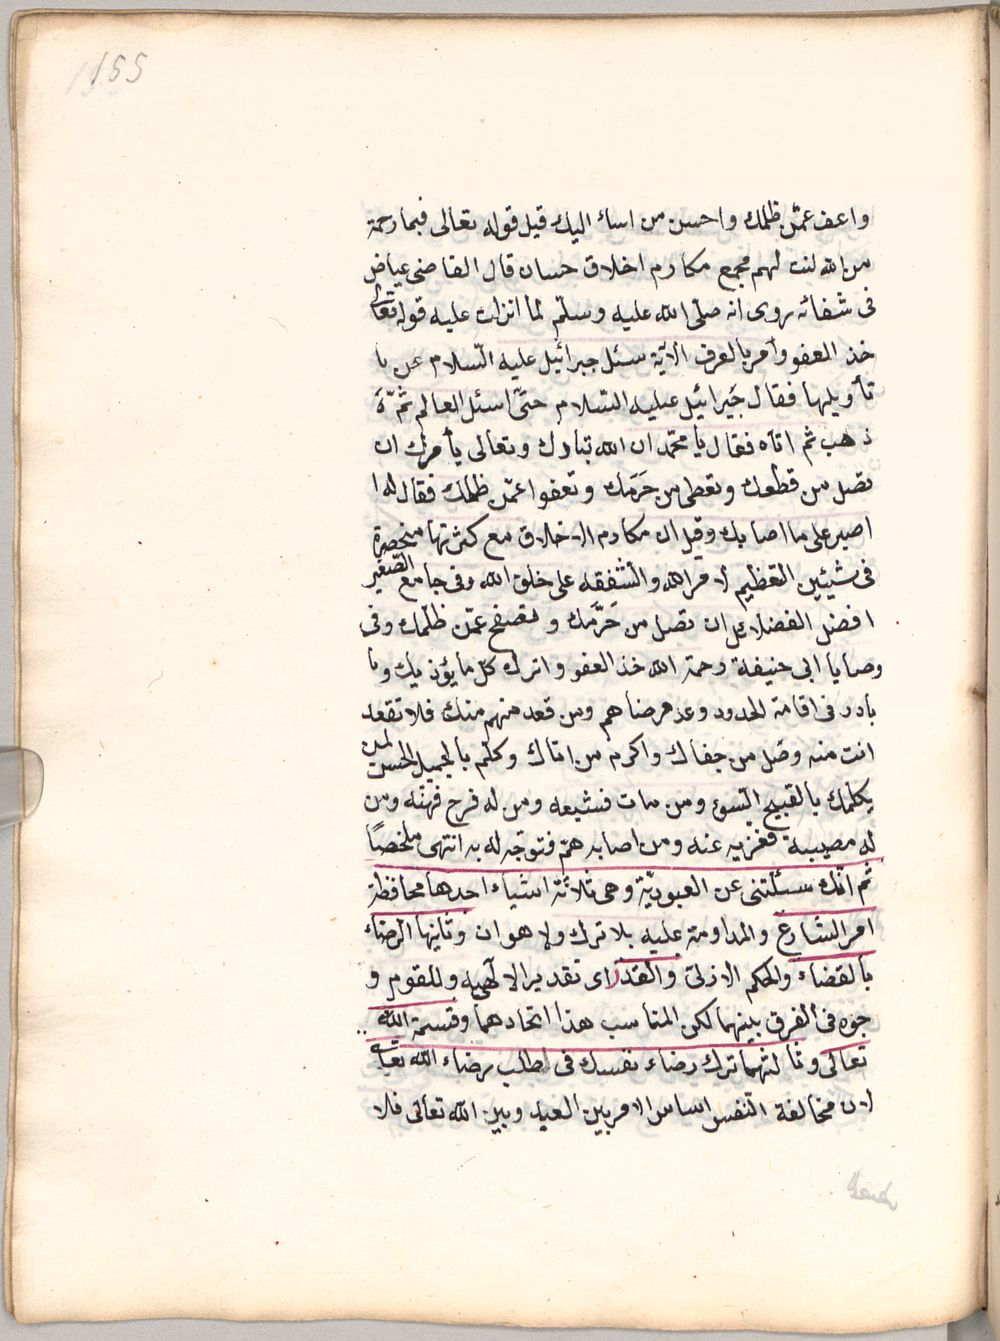 155
واعف عمّن ظلمك واحسن من اساء اليك قيل قوله تعالى فبما رحمة
من الله لنت لهم مجمع مكارم اخلاق حسان قال القاضى عياض
فى شفائه روى انه صلّى الله عليه وسلّم لما انزلت عليه قوله تعالى
خذ العفو وأمر بالعرف الآية سئل جبرائيل عليه السّلام عن يا
تأويلها فقال جَبرائيل عليه السّلام حتّى اسئل العالم ثمّ
ذهب ثم اتاه فقال يا محمّد ان الله تبارك وتعالى يأمرك ان
تصل من قطعك وتعطى من حَرَمك وتعفوا عمّن ظلمك فقال له ا
اصبر على ما اصابك وقيل ان مكارم الاخلاق مع كثرتها منحصرة
فى شيئين التعظيم لامر الله والشفقه على خلق الله وفى جامع الصّغير
افضل الفضلائل ان تصل من حَرَّمك وتصفح عمّن ظلمك وفى
وصايا ابى حنيفة رحمة الله خذ العفو واترك كلّ ما يؤذيك وبا
بادر فى اقامة الحدود وعد مرضاهم ومن قعد منهم منك فلا تقعد
انت منه وصل من جفاك واكرم من اتاك وكلّم بالجميل الحسن لمن
يكلمك بالقبيح السّوء ومن مات فشيعه ومن له فرح فهنّه ومن
له مصيبة فعزيه عنه ومن اصابه همّ فتوجّه له به انتهى ملخصاً
ثم انّك سئلتنى عن العبوديّة وهى ثلاثة اشياء احدها محافظة
امر الشارع والمداومة عليه بلا ترك ولا هوان وثانيها الرضاء
بالقضاء والحكم الازلىّ والقدر اى تقدير الالٓهيه وللقوم و
جوه فى الفرق بينهما لكن المناسب هذا اتحادهما وقسمة الله
تعالى وثالثهما ترك رضاء نفسك فى طلب رضاء الله تعالى
لان مخالفة النّفس اساس الامر بين العبد وبين الله تعالى فلا